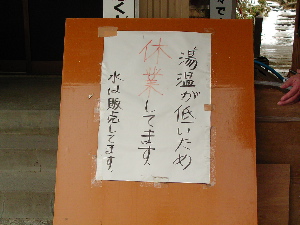 湯温が低いため
休業してます。
水は販売してます。